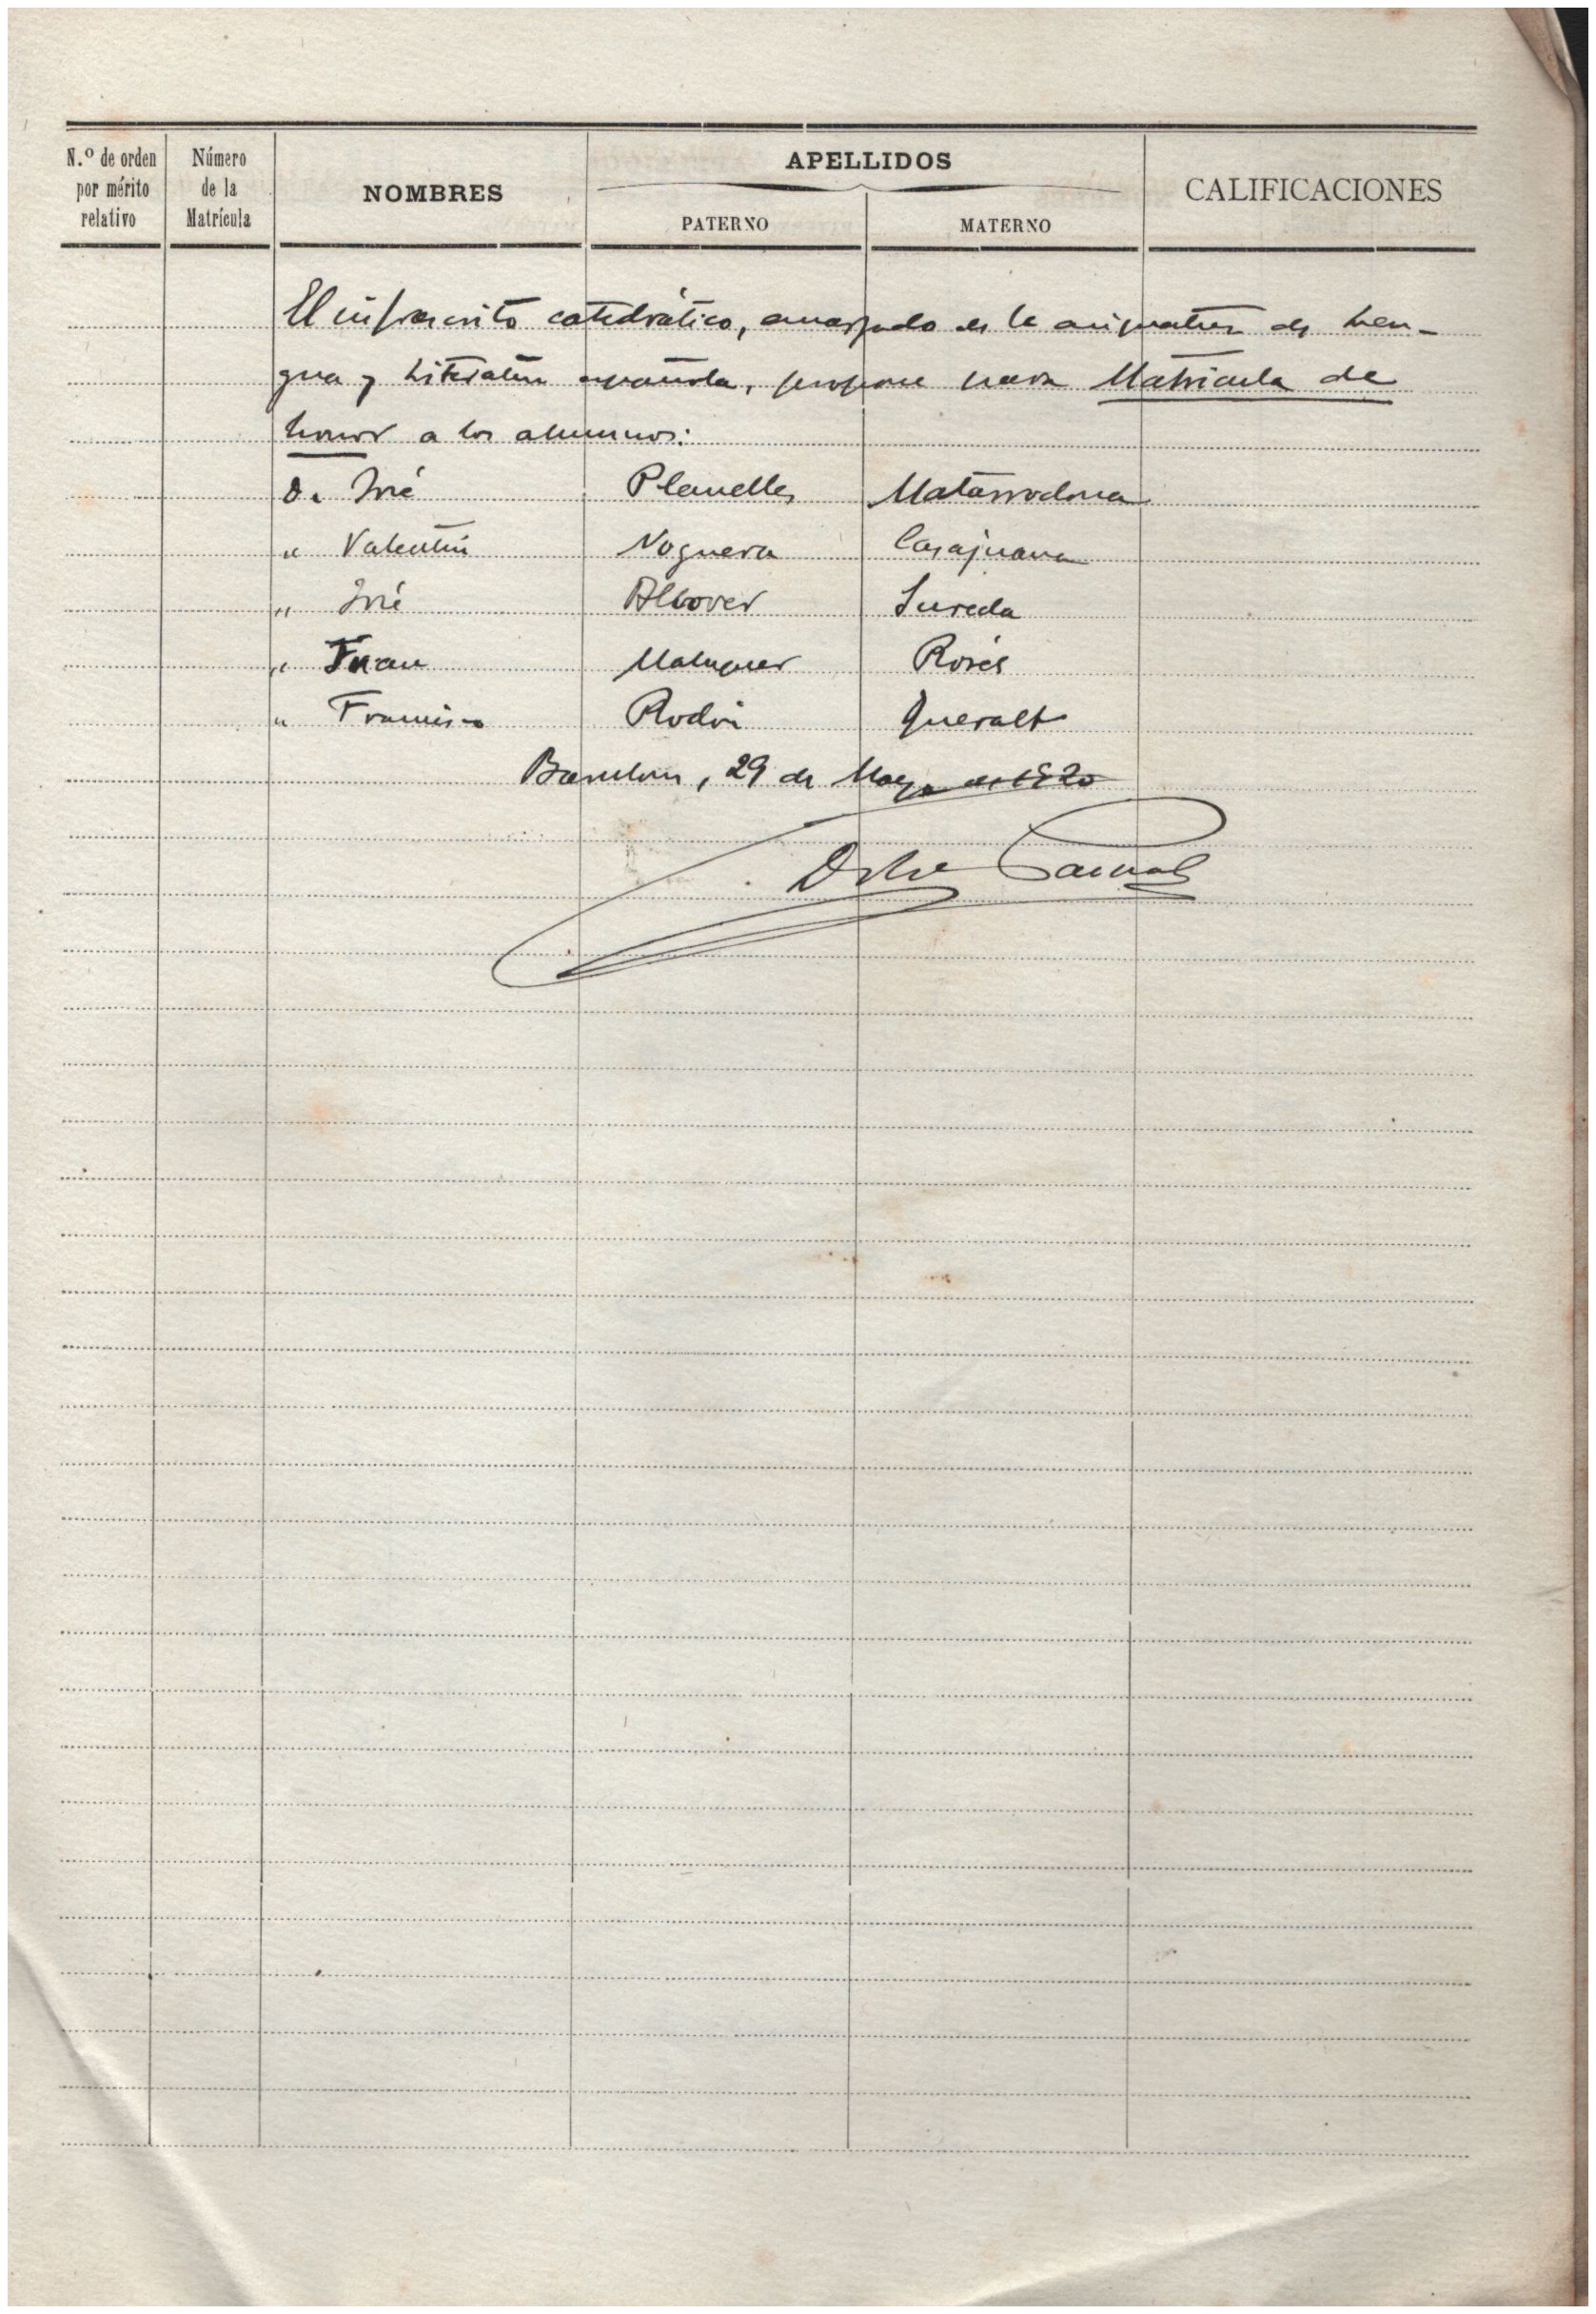 N.º de orden por mérito relativo
Número de la Matrícula
NOMBRES
APELLIDOS
PATERNO
MATERNO
CALIFICACIONES
El infrascrito catedrático, encargado de la asignatura de Len-
gua y Literatura española, propone para Matrícula de
honor a los alumnos:
D. José Planelles Matarrodona
" Valentín Noguera Casajuana
" José Alcover Sureda
" Juan Maluquer Rosés
" Francisco Rodón Queralt
Barcelona, 29 de Mayo de 1920